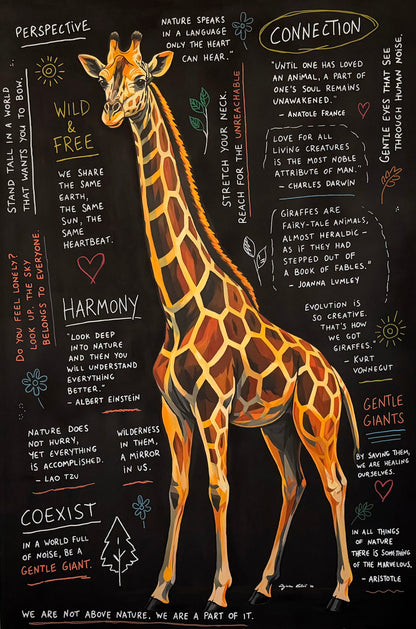 PERSPECTIVE
NATURE SPEAKS
IN A LANGUAGE
ONLY THE HEART
CAN HEAR."
CONNECTION
"UNTIL ONE HAS LOVED
AN ANIMAL, A PART OF
ONE'S SOUL REMAINS
UNAWAKENED."
- ANATOLE FRANCE
GENTLE EYES THAT SEE
THROUGH HUMAN NOISE.
STAND TALL IN A WORLD
THAT WANTS YOU TO BOW.
WILD
&
FREE
WE SHARE
THE SAME
EARTH,
THE SAME
SUN, THE
SAME
HEARTBEAT.
STRETCH YOUR NECK.
REACH FOR THE UNREACHABLE
LOVE FOR ALL
LIVING CREATURES
IS THE MOST NOBLE
ATTRIBUTE OF MAN."
- CHARLES DARWIN
GIRAFFES ARE
FAIRY-TALE ANIMALS,
ALMOST HERALDIC -
AS IF THEY HAD
STEPPED OUT OF
A BOOK OF FABLES."
- JOANNA LUMLEY
DO YOU FEEL LONELY?
LOOK UP. THE SKY
BELONGS TO EVERYONE.
HARMONY
"LOOK DEEP
INTO NATURE
AND THEN YOU
WILL UNDERSTAND
EVERYTHING
BETTER."
- ALBERT EINSTEIN
EVOLUTION IS
SO CREATIVE.
THAT'S HOW
WE GOT
GIRAFFES."
- KURT
VONNEGUT
GENTLE
GIANTS
BY SAVING THEM,
WE ARE HEALING
OURSELVES.
NATURE DOES
NOT HURRY,
YET EVERYTHING
IS ACCOMPLISHED.
- LAO TZU
WILDERNESS
IN THEM,
A MIRROR
IN US.
COEXIST
IN A WORLD FULL
OF NOISE, BE A
GENTLE GIANT.
IN ALL THINGS
OF NATURE
THERE IS SOMETHING
OF THE MARVELOUS.
- ARISTOTLE
WE ARE NOT ABOVE NATURE, WE ARE A PART OF IT.